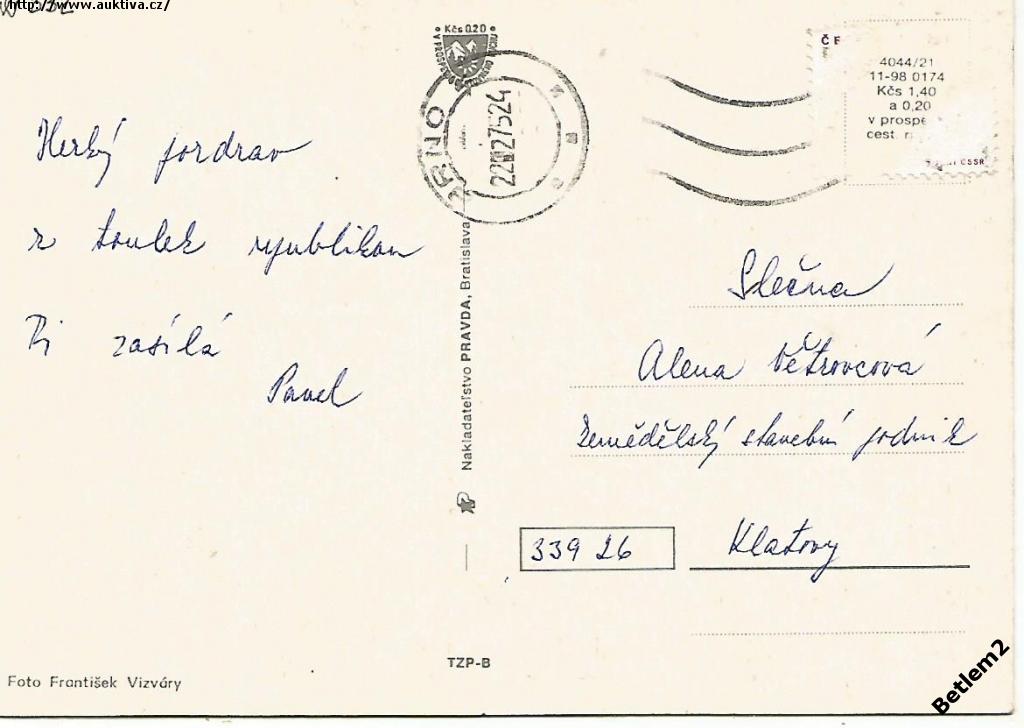 http://www.auktiva.cz/
Kčs 0.20
BRNO
22027524
ČE
4044/21
11-98 0174
Kčs 1,40
a 0,20
v prospe
cest. r
ČSSR
Herký pozdrav
z toulek republikou
Ti zasílá
Pavel
Nakladateľstvo PRAVDA, Bratislava
Slečna
Alena Větrovcová
Zemědělský stavební podnik
339 26
Klatovy
TZP-B
Foto František Vizváry
Betlem2